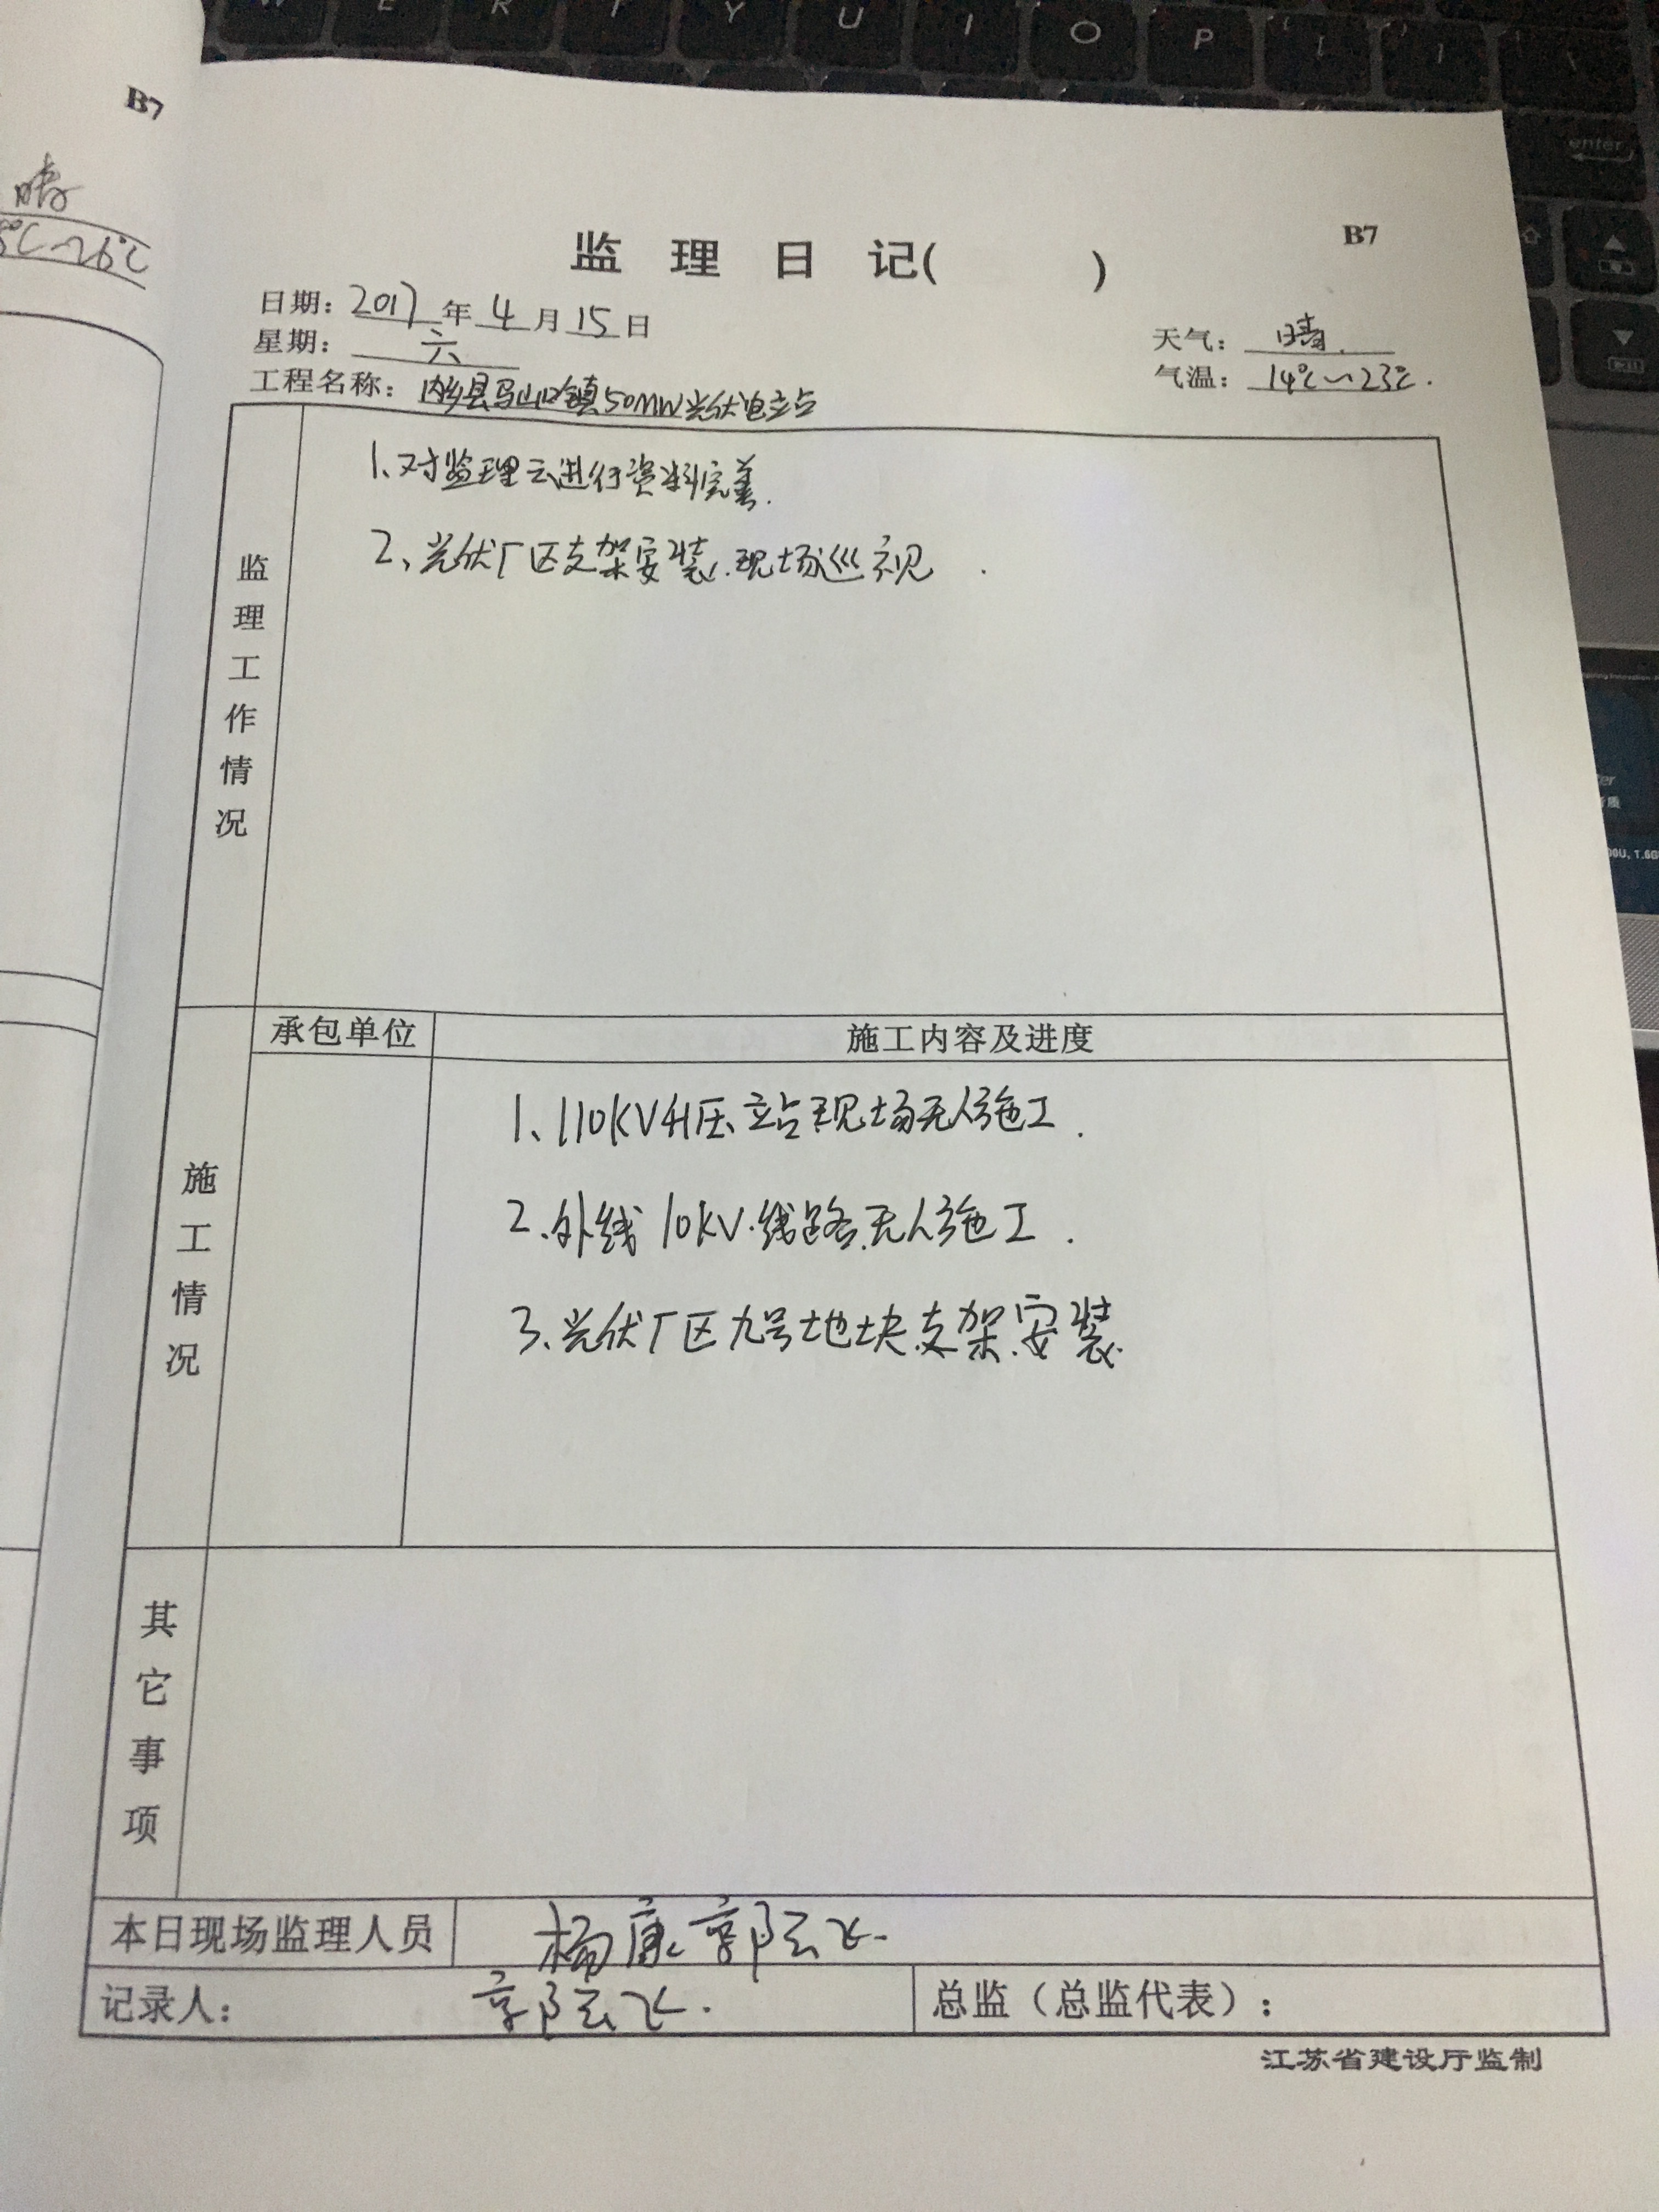 B7
晴
℃~26℃
W E R T Y U I O P
enter
B7
监 理 日 记( )
日期: 2017 年 4 月 15 日
星期: 六
天气: 晴.
工程名称: 内乡县马山口镇50MW光伏电站
气温: 14℃~23℃.
监理工作情况
1、对监理云进行资料完善.
2、光伏厂区支架安装.现场巡视.
承包单位
施工内容及进度
施工情况
1、110KV升压站现场无人施工.
2.外线10KV.线路.无人施工.
3.光伏厂区九号地块.支架.安装.
其它事项
本日现场监理人员
杨康 郭陆飞.
记录人:
郭陆飞.
总监（总监代表）:
江苏省建设厅监制